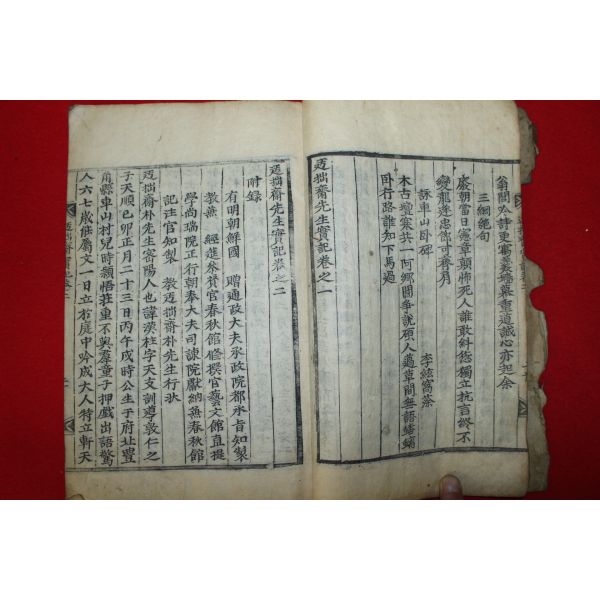 翁聞吟詩更審義墻羹重道誠心亦起余
三綱絶句
廢朝當日憲章顛怖死人誰敢糾愆獨立抗言終不
變龍逄忠節可齊肩
詠車山臥碑 李絃窩藁
木古壇寒共一阿鄉閭爭說碩人薖草間無語
臥行路誰知下馬過
迃拙齋先生實記卷之一
迃拙齋先生實記卷之二
附錄
有明朝鮮國 贈通政大夫承政院都承旨知製
教兼 經筵參贊官春秋館修撰官藝文館直提
學尚瑞院正行朝奉大夫司諫院獻納無春秋館
記注官知製 教迃拙齋朴先生行狀
迃拙齋朴先生密陽人也諱漢柱字天支訓導敦仁之
子天順己卯正月二十三日丙午戌時公生于府址豊
角縣車山村兒時頴悟莊重不與羣童子押戲出語驚
人六七歲能屬文一日立於庭中吟成大人特立軒天